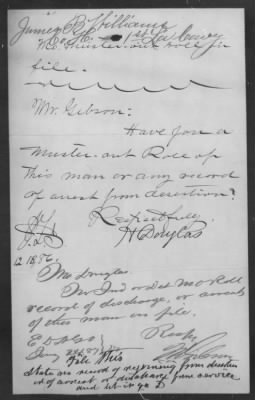 James B. Williams
Co. H. 1st La. Cavy
No Muster-out roll on
file.
Mr. Gibson:
Have you a
Muster-out Roll of
this man or any record
of arrest from desertion?
Respectfully
H Douglas
12.18.86.
Mr. Douglas.
No Ind or Det M O Roll
record of discharge, or arrest
of this man on file.
Resply
File this
State no record of returning from desertion
or of arrest or discharge from service
and let it go